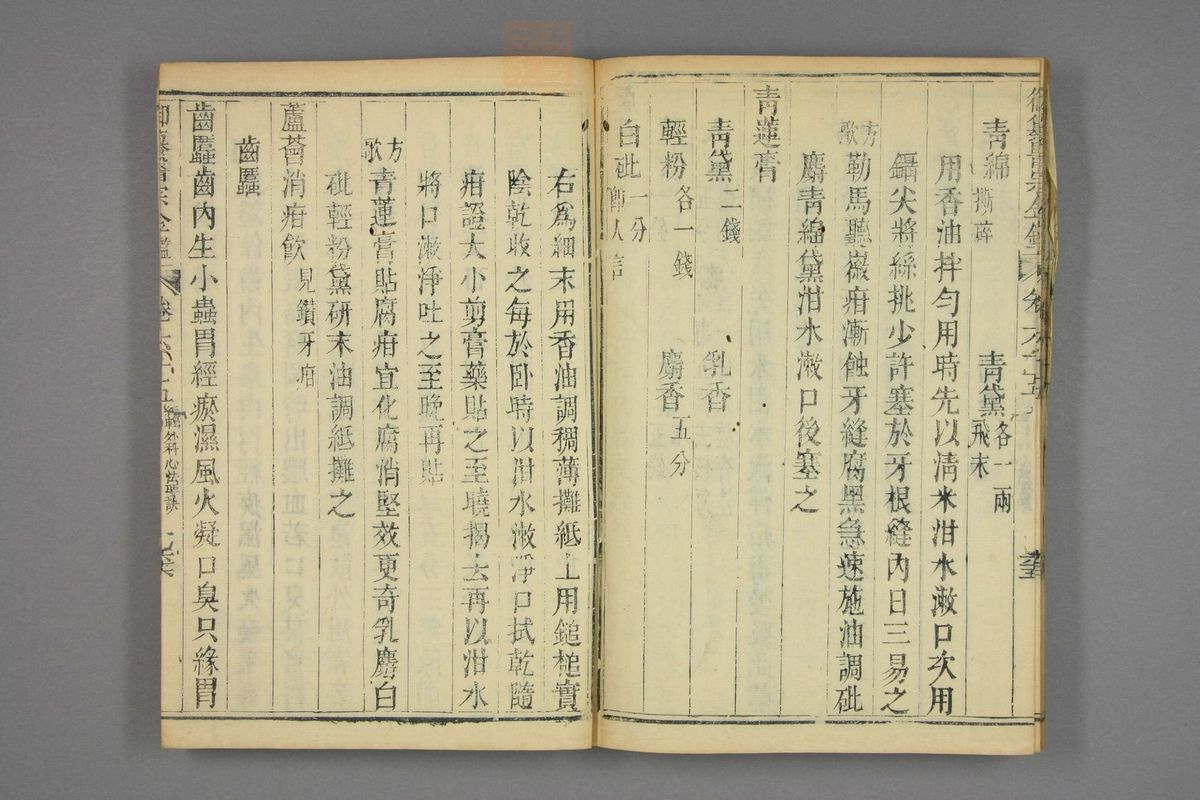 青綿撕碎 青黛各一兩飛末
用香油拌勻用時先以清米泔水漱口次用
鑷尖將絲挑少許塞於牙根縫內日三易之
方歌勒馬聽嚴疳漸蝕牙縫腐黑急速施油調砒
麝青綿黛泔水漱口後塞之
青蓮膏
青黛二錢 乳香
輕粉各一錢 麝香五分
白砒一分即人言
右為細末用香油調稠薄攤紙上用鎚槌實
陰乾收之每於臥時以泔水漱淨口拭乾隨
疳證大小剪膏藥貼之至曉揭去再以泔水
將口漱淨吐之至晚再貼
方歌青蓮膏貼腐疳宜化腐消堅效更奇乳麝白
砒輕粉黛研末油調紙攤之
蘆薈消疳飲見鑽牙疳
齒䘌
齒䘌齒內生小蟲胃經瘀濕風火凝口臭只緣胃
御纂醫宗金鑑 卷六十五 編輯外科心法要訣